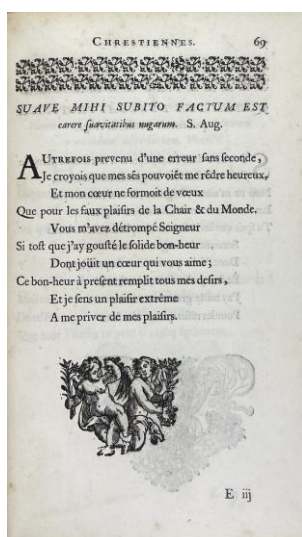 CHRESTIENNES. 69
SUAVE MIHI SUBITO FACTUM EST
carere suavitatibus nugarum. S. Aug.
AUTREFOIS prevenu d'une erreur sans seconde,
Je croyois que mes sẽs pouvoiẽt me rẽdre heureux,
Et mon cœur ne formoit de vœux
Que pour les faux plaisirs de la Chair & du Monde.
Vous m'avez détrompé Seigneur
Si tost que j'ay gousté le solide bon-heur
Dont joüit un cœur qui vous aime;
Ce bon-heur à present remplit tous mes desirs,
Et je sens un plaisir extrême
A me priver de mes plaisirs.
E iij